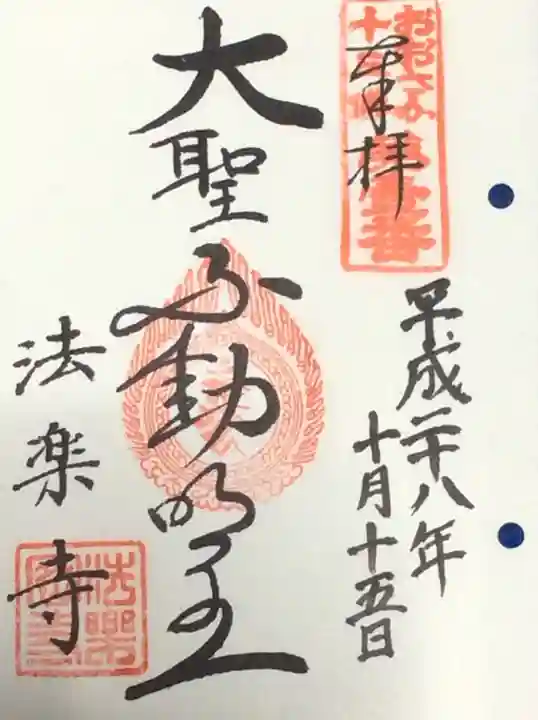 奉拝
おおさか十三佛
平成二十八年
十月十五日
大聖不動明王
法楽寺